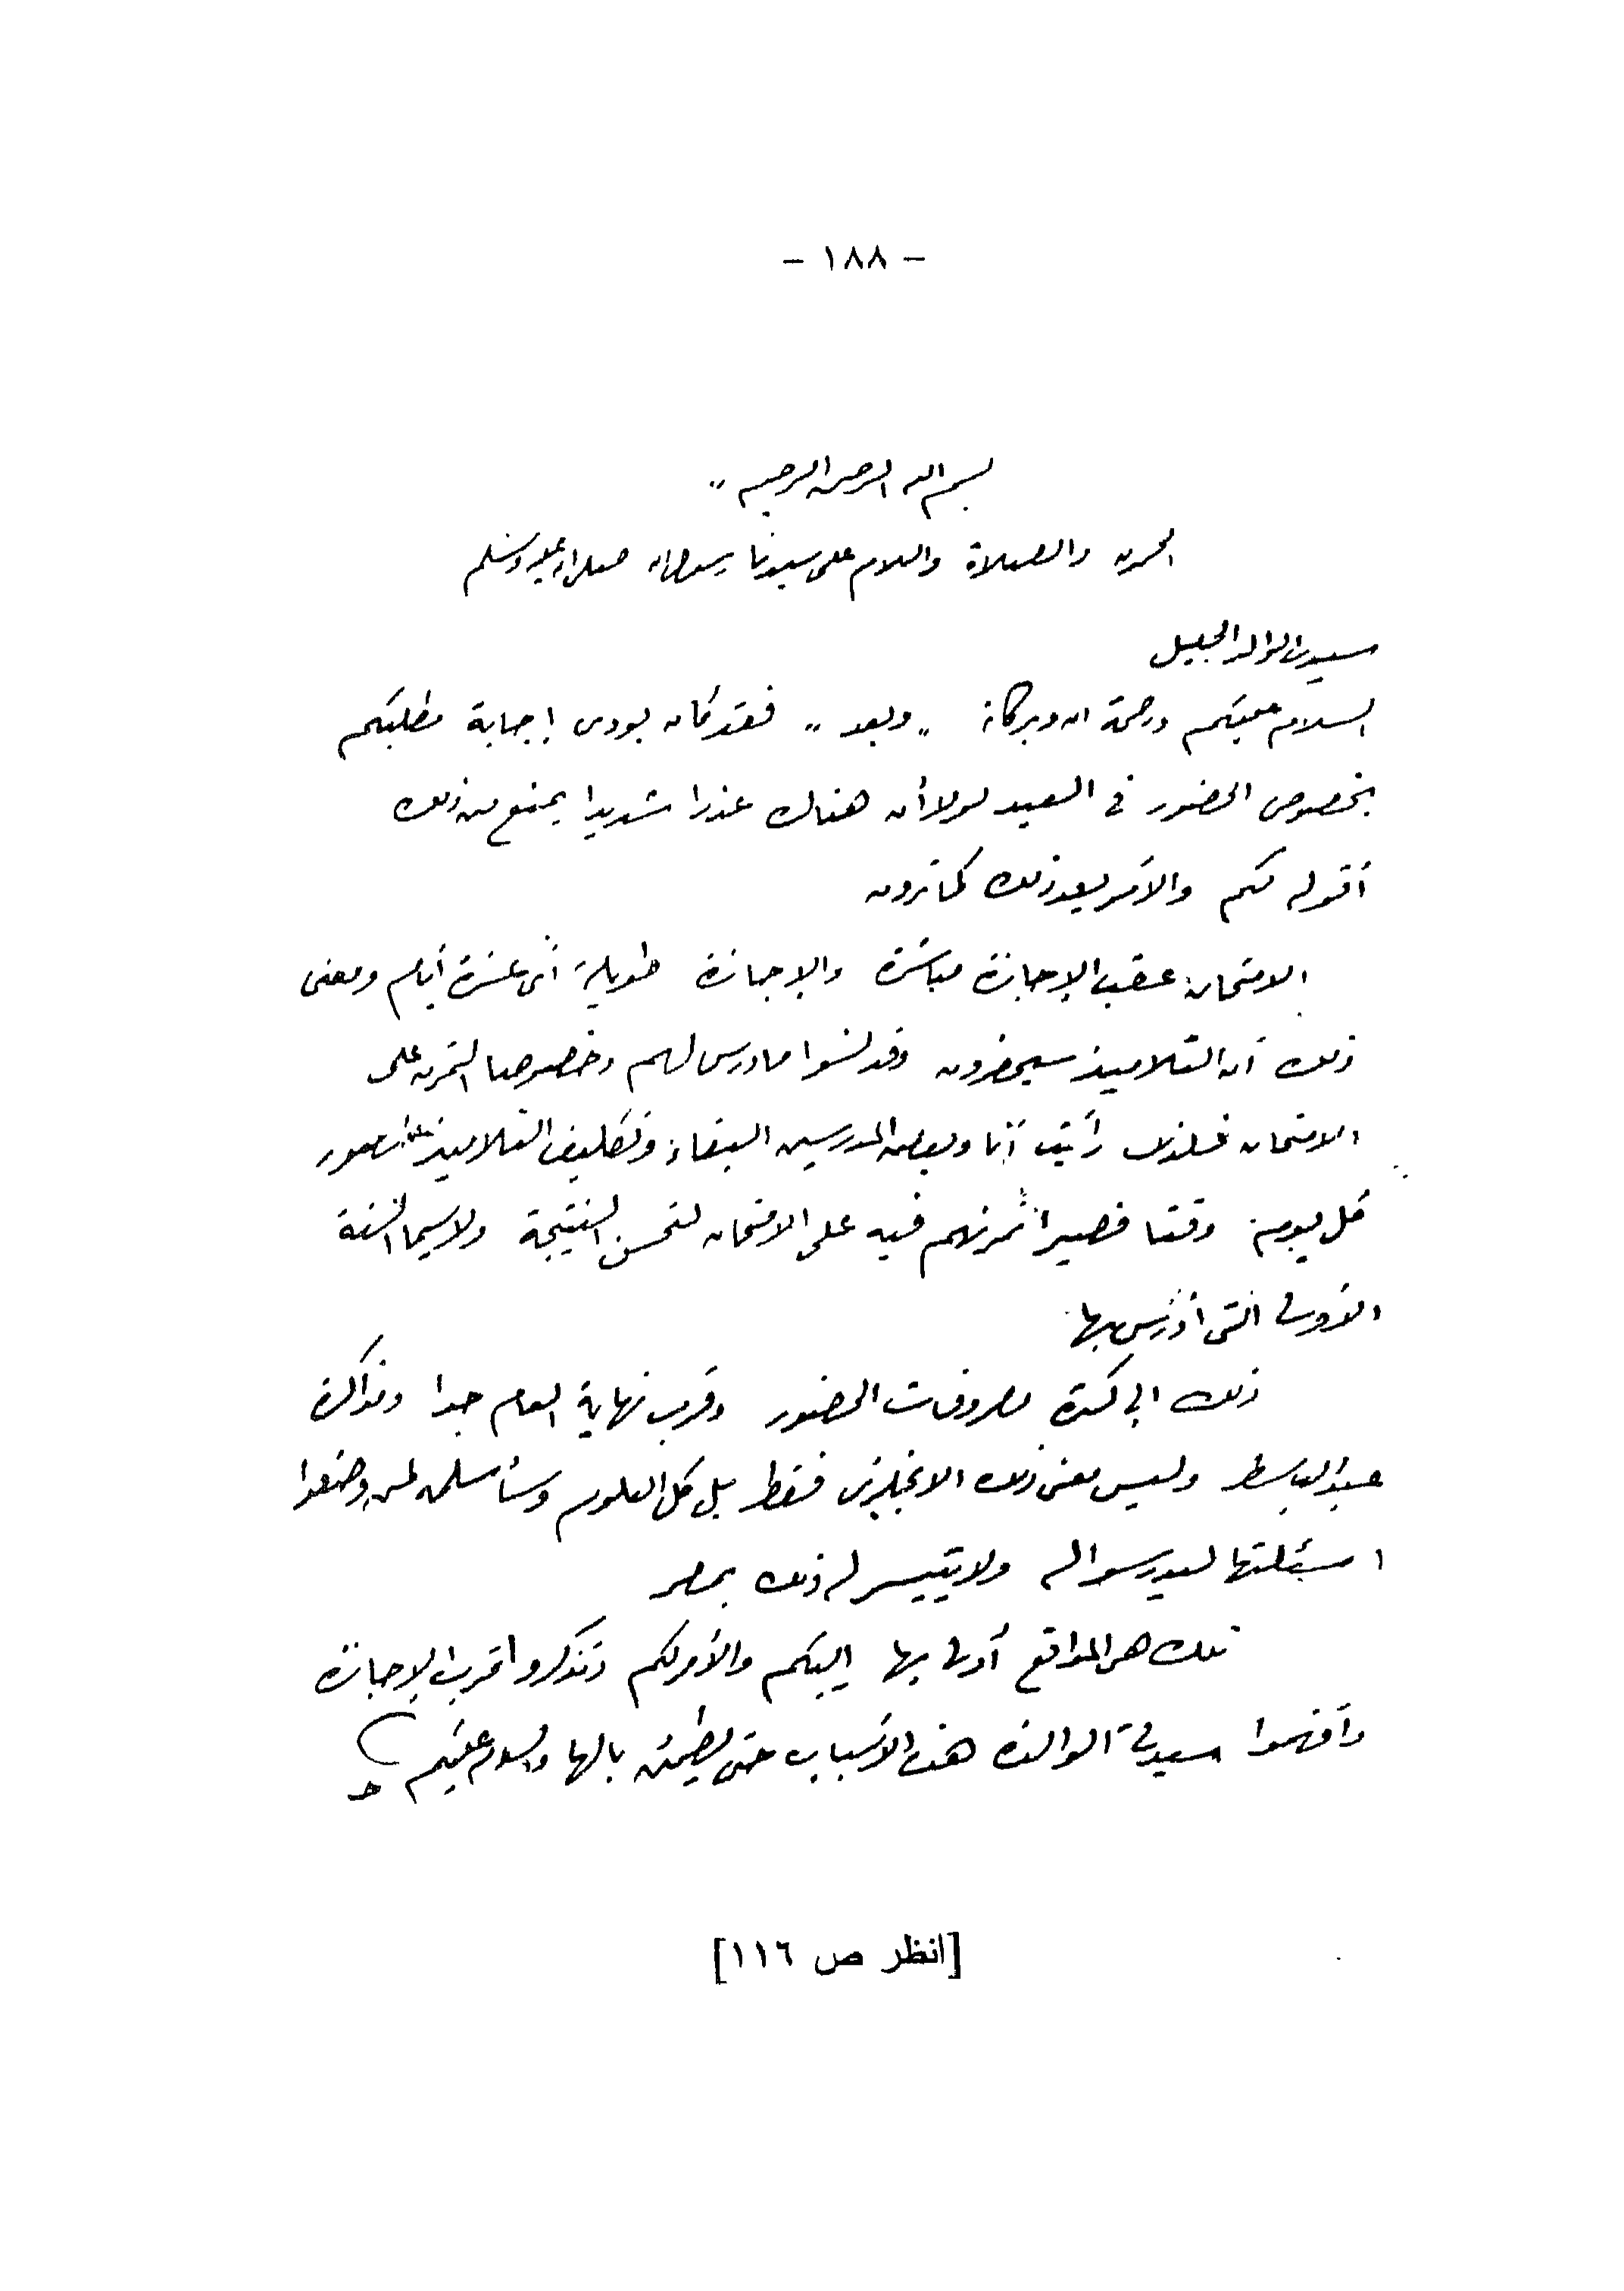 - ١٨٨ -
بسم الله الرحمن الرحيم ,,
الحمد لله والصلاة والسلام على سيدنا رسول الله صلى الله عليه وسلم
سيدى الوالد الجليل
السلام عليكم ورحمة الله وبركاته ,, وبعد ,, فقد كان بودى إجابة مطلبكم
بخصوص الحضور فى العيد لولا أن هناك عذرا شديدا يمنع من ذلك
أقوله لكم والأمر بعد ذلك كما ترون
الامتحان عقب الإجازة مباشرة والإجازة طويلة أى عشرة أيام ومعنى
ذلك أن التلاميذ سيحضرون وقد نسوا ما درس لهم وخصوصا التمرن على
الامتحان فلذلك رأيت أنا وبعض المدرسين البقاء وتكليف التلاميذ الحضور
كل يوم وقتا قصيرا نمرنهم فيه على الامتحان لتحسن النتيجة ولاسيما السنة
الأولى التى أدرس بها
ذلك الى كثرة مصروفات الحضور وقرب نهاية العام جدا ومذاكرة
عبد الباسط وليس معنى ذلك الانجليزى فقط بل كل العلوم وسأسلمه لمن وضعوا
اسئلتها ليدرسوا له ولا يتيسر له ذلك بمصر
تلك هى الموانع أدلى بها إليكم والأمر لكم وتذكروا قرب الإجازة
وأفهموا سيدتى الوالدة هذه الأسباب حتى يطمئن بالها والسلام عليكم
[انظر ص ١١٦]